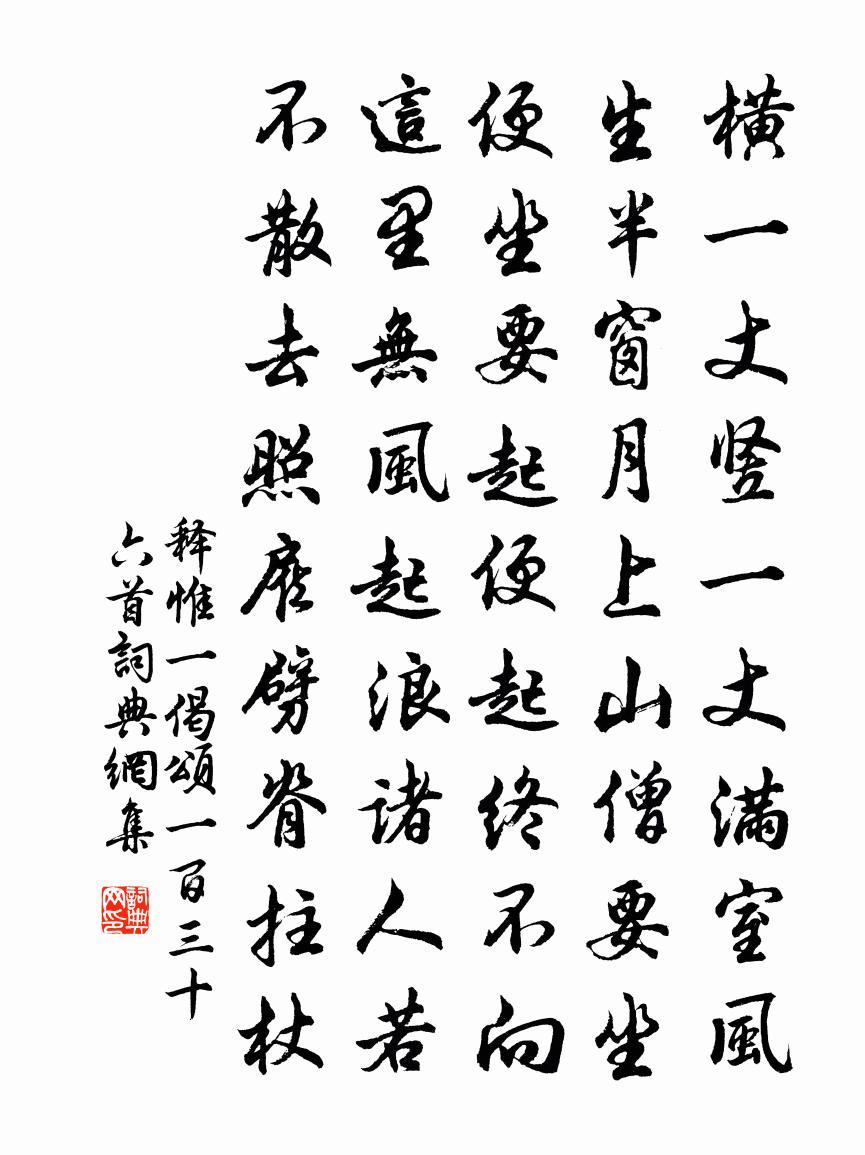 橫一丈竖一丈滿室風
生半窗月上山僧要坐
便坐要起便起終不向
這里無風起浪諸人若
不散去照屁劈脊拄杖
释惟一偈頌一百三十
六首詞典網集
詞典网印